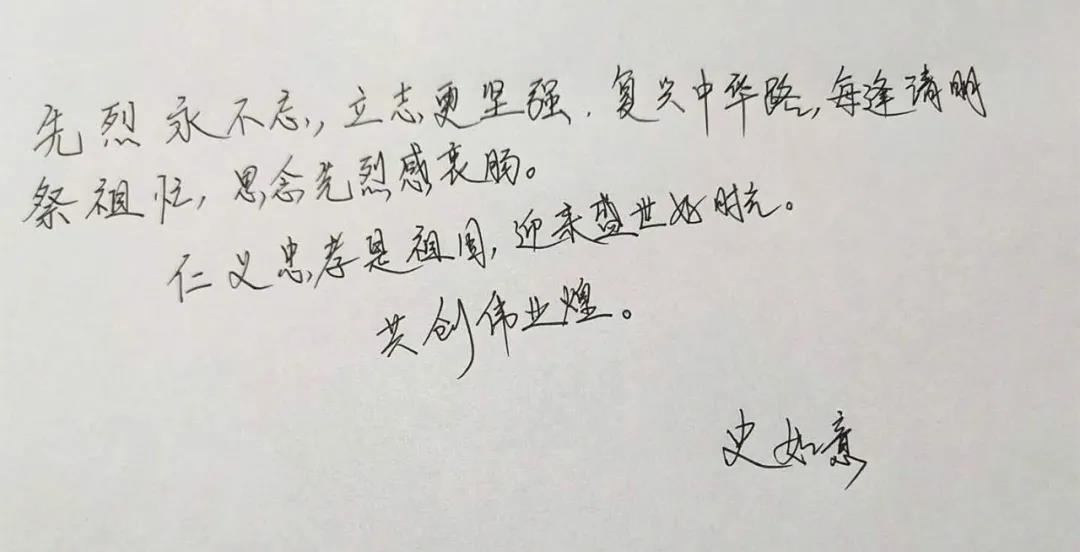 先烈永不忘,立志更坚强.复兴中华路,每逢请明
祭祖忙,思念先烈感衷肠。
仁义忠孝是祖国,迎来盛世好时光。
共创伟业煌。
史如意